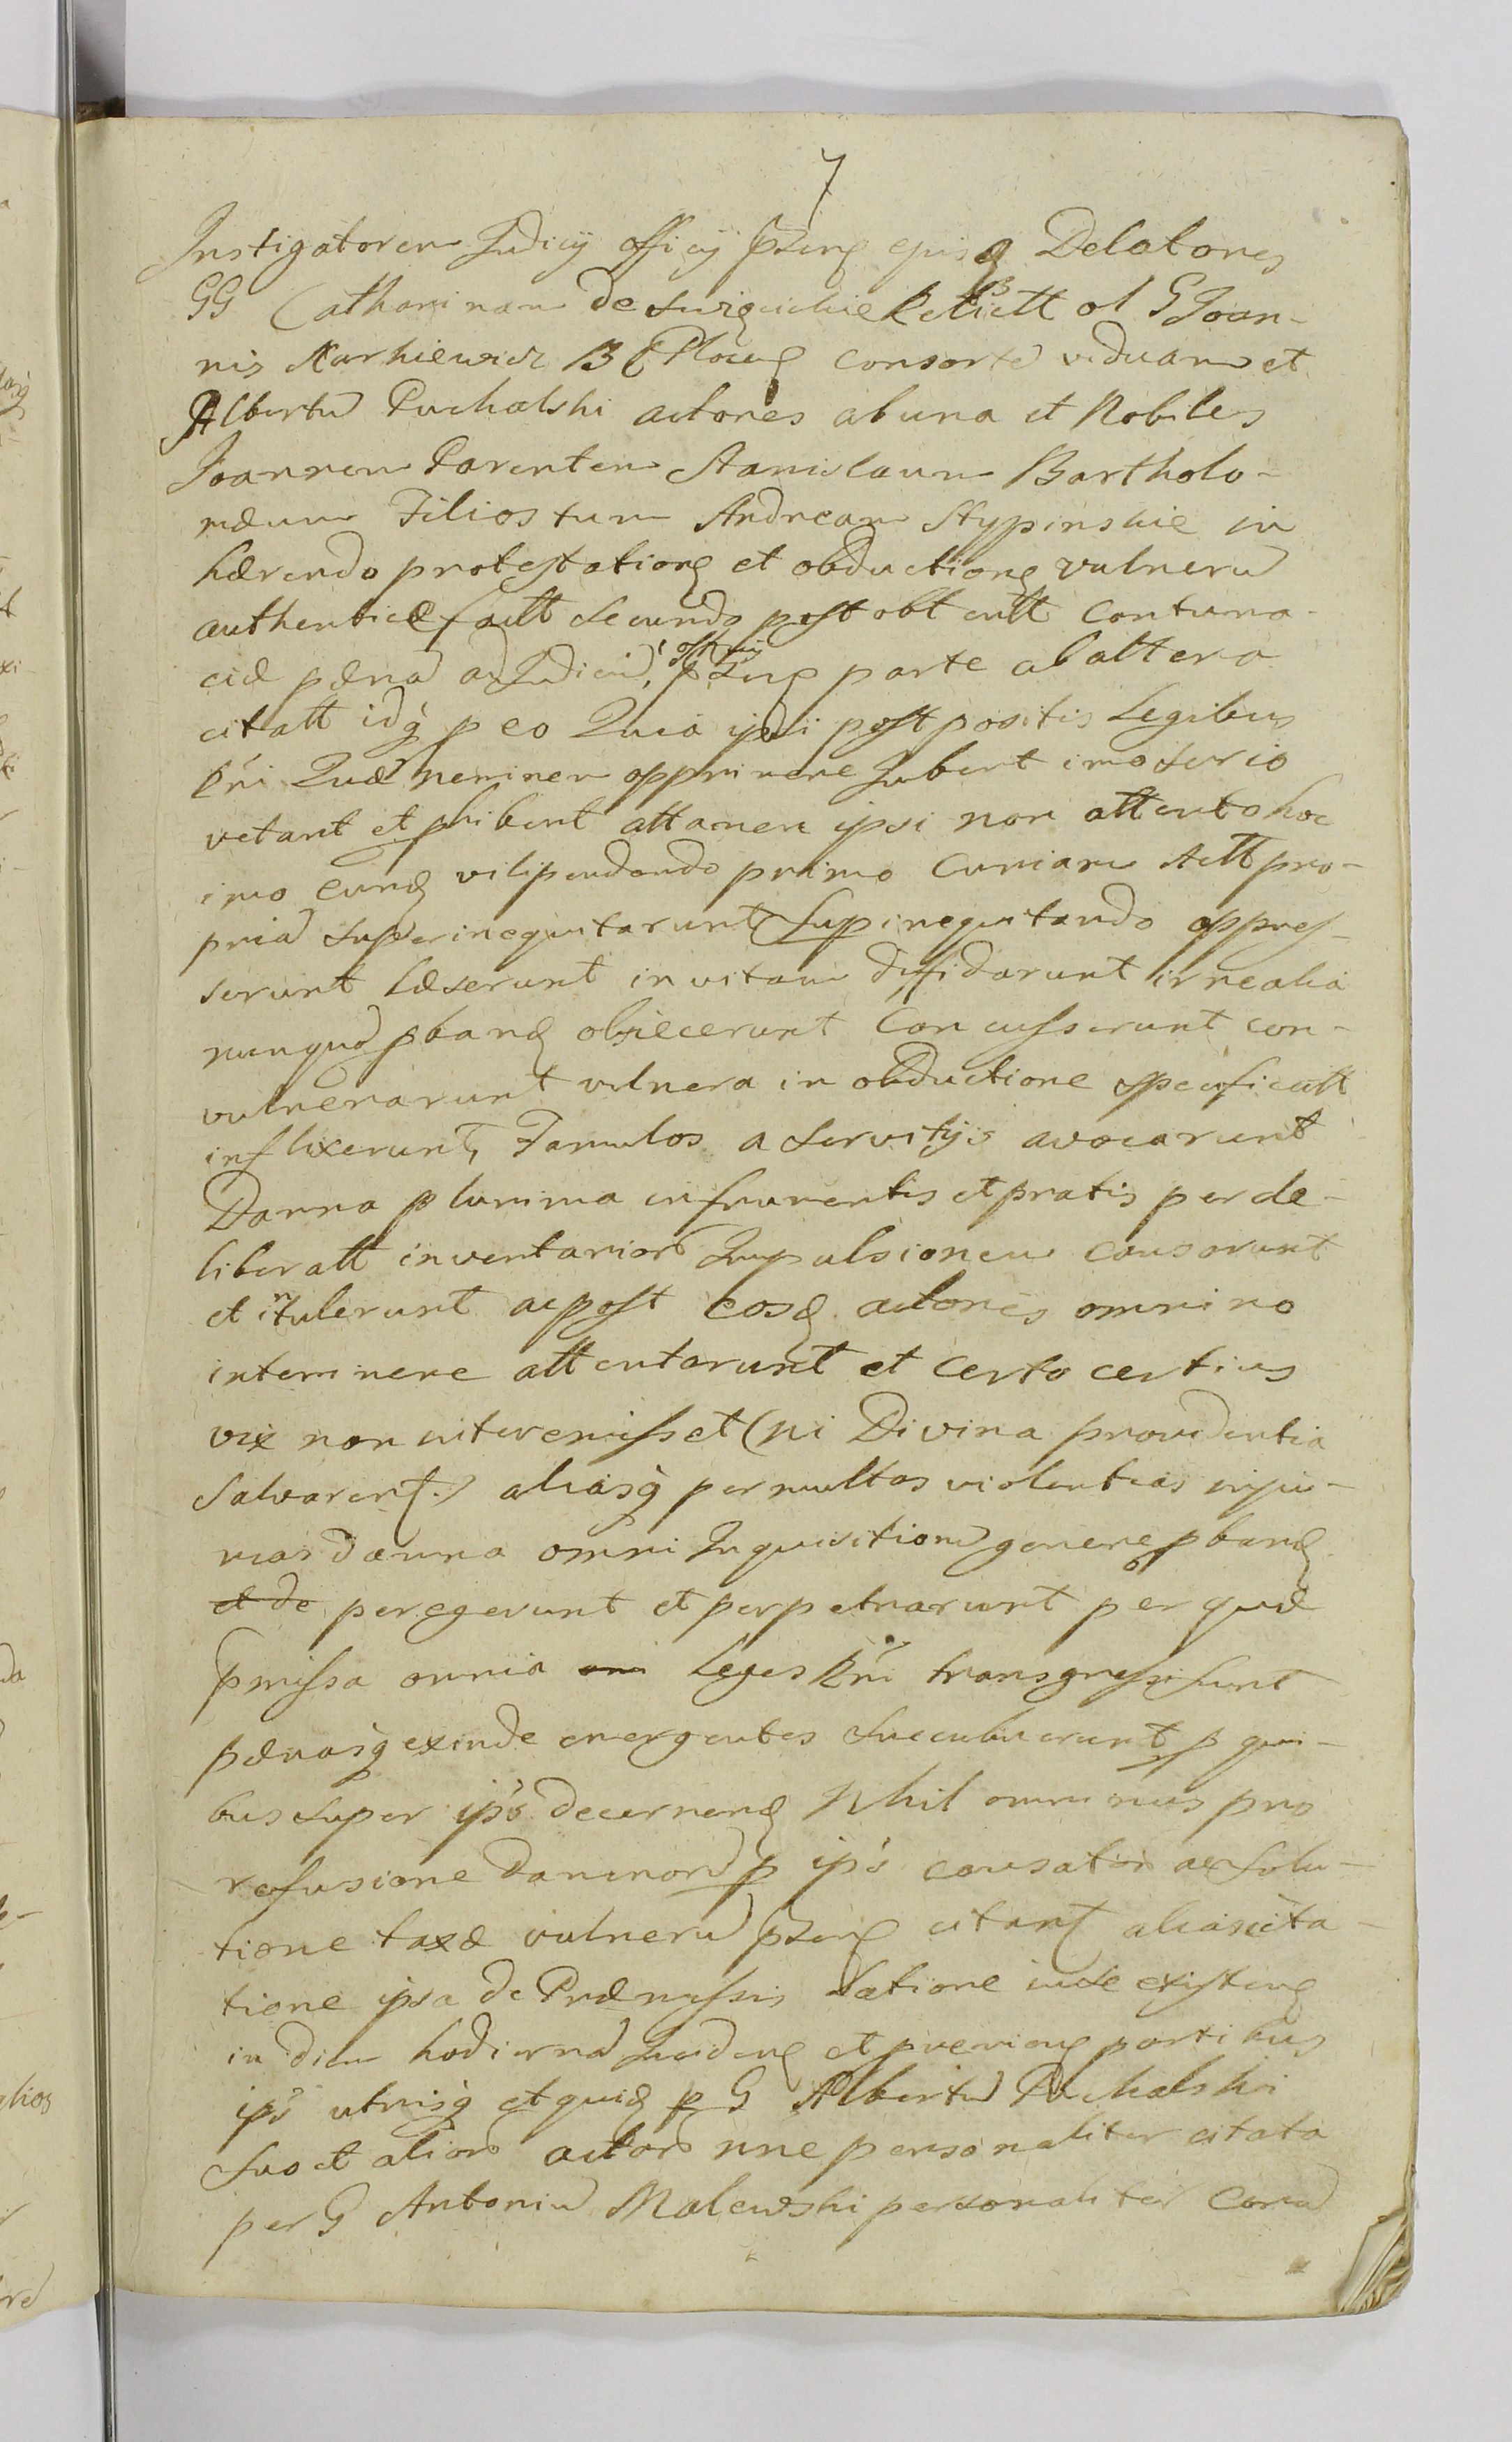 7
Instigatorem Judicij officij pntis ejusq Delatores
GG Catharinam de Relictt ol G Joan-
nis Markiewicz B C Plocen consorte viduam et
Albertu Puchalski actores ab una et Nobiles
Joannem Parentem Stanislaum Bartholo-
mæum Filios tum Andream Stypinskie in
hærendo protestationi et obductioni vulneru
authenticæ factt secundo post obtentt contuma-
ciæ pæna ad Judiciu officij parte ab altera
citatt idq p eo Quia ipsi post positis Legibus
Rni Quæ neminem opprimere Jubent imo serio
vetant et phibent attamen ipsi non attento hoc
imo eund vilipendendo primo Curiam Actt pro-
pria superinequitarunt Supinequitando oppres-
serunt læserunt in vitam diffidarunt irrealia
nunquá pband objecerunt Concusserunt con-
vulnerarunt vulnera in obductione specificatt
inflixerunt, Famulos a servitijs avocarunt
Damna plurima in frumentis et pratis per de-
liberatt inventarioru Impulsionem causarunt
et intulerunt ac post eosd actores omnino
interimere attentarunt et certo certius
vix non interemisset (ni Divina providentia
salvarent.) aliasq permultas violentias inju-
rias damna omni Inquisitionu genere pband
et de peregerunt et perpetrarunt per quæ
pmissa omnia om Leges Rni transgressi sunt
pænasq exinde emergentes succubuerunt p qui-
bus super ips decernend Nihil ominus pro
refusione damnoru p ips causator ac solu-
tione taxæ vulneru pnten citant alias cita-
tione ipsa de Præmissis Latione inde existen
in diem hodierná Inciden et pvenien partibus
ips utrisq et quid p G Albertu Puchalski
suo et alioru actoru nne personaliter citata
per G Antoniu Malewski personaliter coram